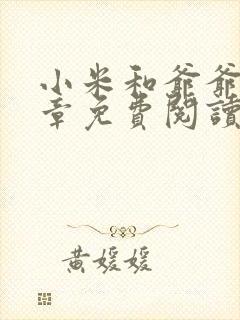 小米和爺爺
章免費閱讀
黃媛媛